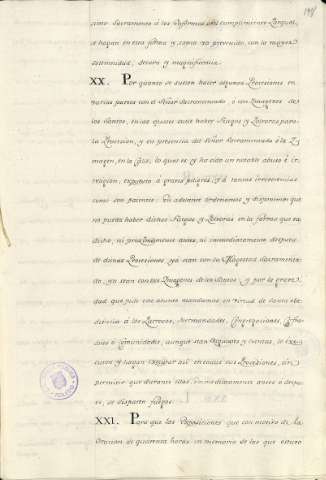 simo Sacramento á los Enfermos en el cumplimiento Pasqual,
se hagan en esta forma y como vá prevenido, con la mayor
solemnidad, decoro y magnificencia.
XX. Por quanto se suelen hacer algunas Procesiones en
varias partes con el Señor Sacramentado, ó con Imagenes de
los Santos, en las quales suele haber Fuegos y Polvoras para
la Procesion, y en presencia del Señor Sacramentado ó la Y-
magen, en la Calle; lo que es y ha sido un notable abuso é in-
vencion, expuesto á graves peligros, y á tantas irreverencias
como son patentes: En adelante ordenamos y disponemos que
no pueda haber dichos Fuegos y Polvoras en la forma que vá
dicha, ni proximamente antes, ni inmediatamente despues
de dichas Procesiones yá sean con la Magestad Sacramenta-
da, yá sean con las Imagenes de los Santos: y por la grave-
dad que pide este asunto mandamos en virtud de santa obe-
diencia á los Parrocos, Hermandades, Congregaciones, Cofra-
dias ó Comunidades, aunque sean Regulares y exentas, lo exe-
cuten y hagan executar asi en todas sus Procesiones, sin
permitir que durante ellas, inmediatamente antes o despu-
es, se disparen fuegos.
XXI. Para que las Exposiciones que con motivo de la
Oracion de quarenta horas en memoria de las que estuvo